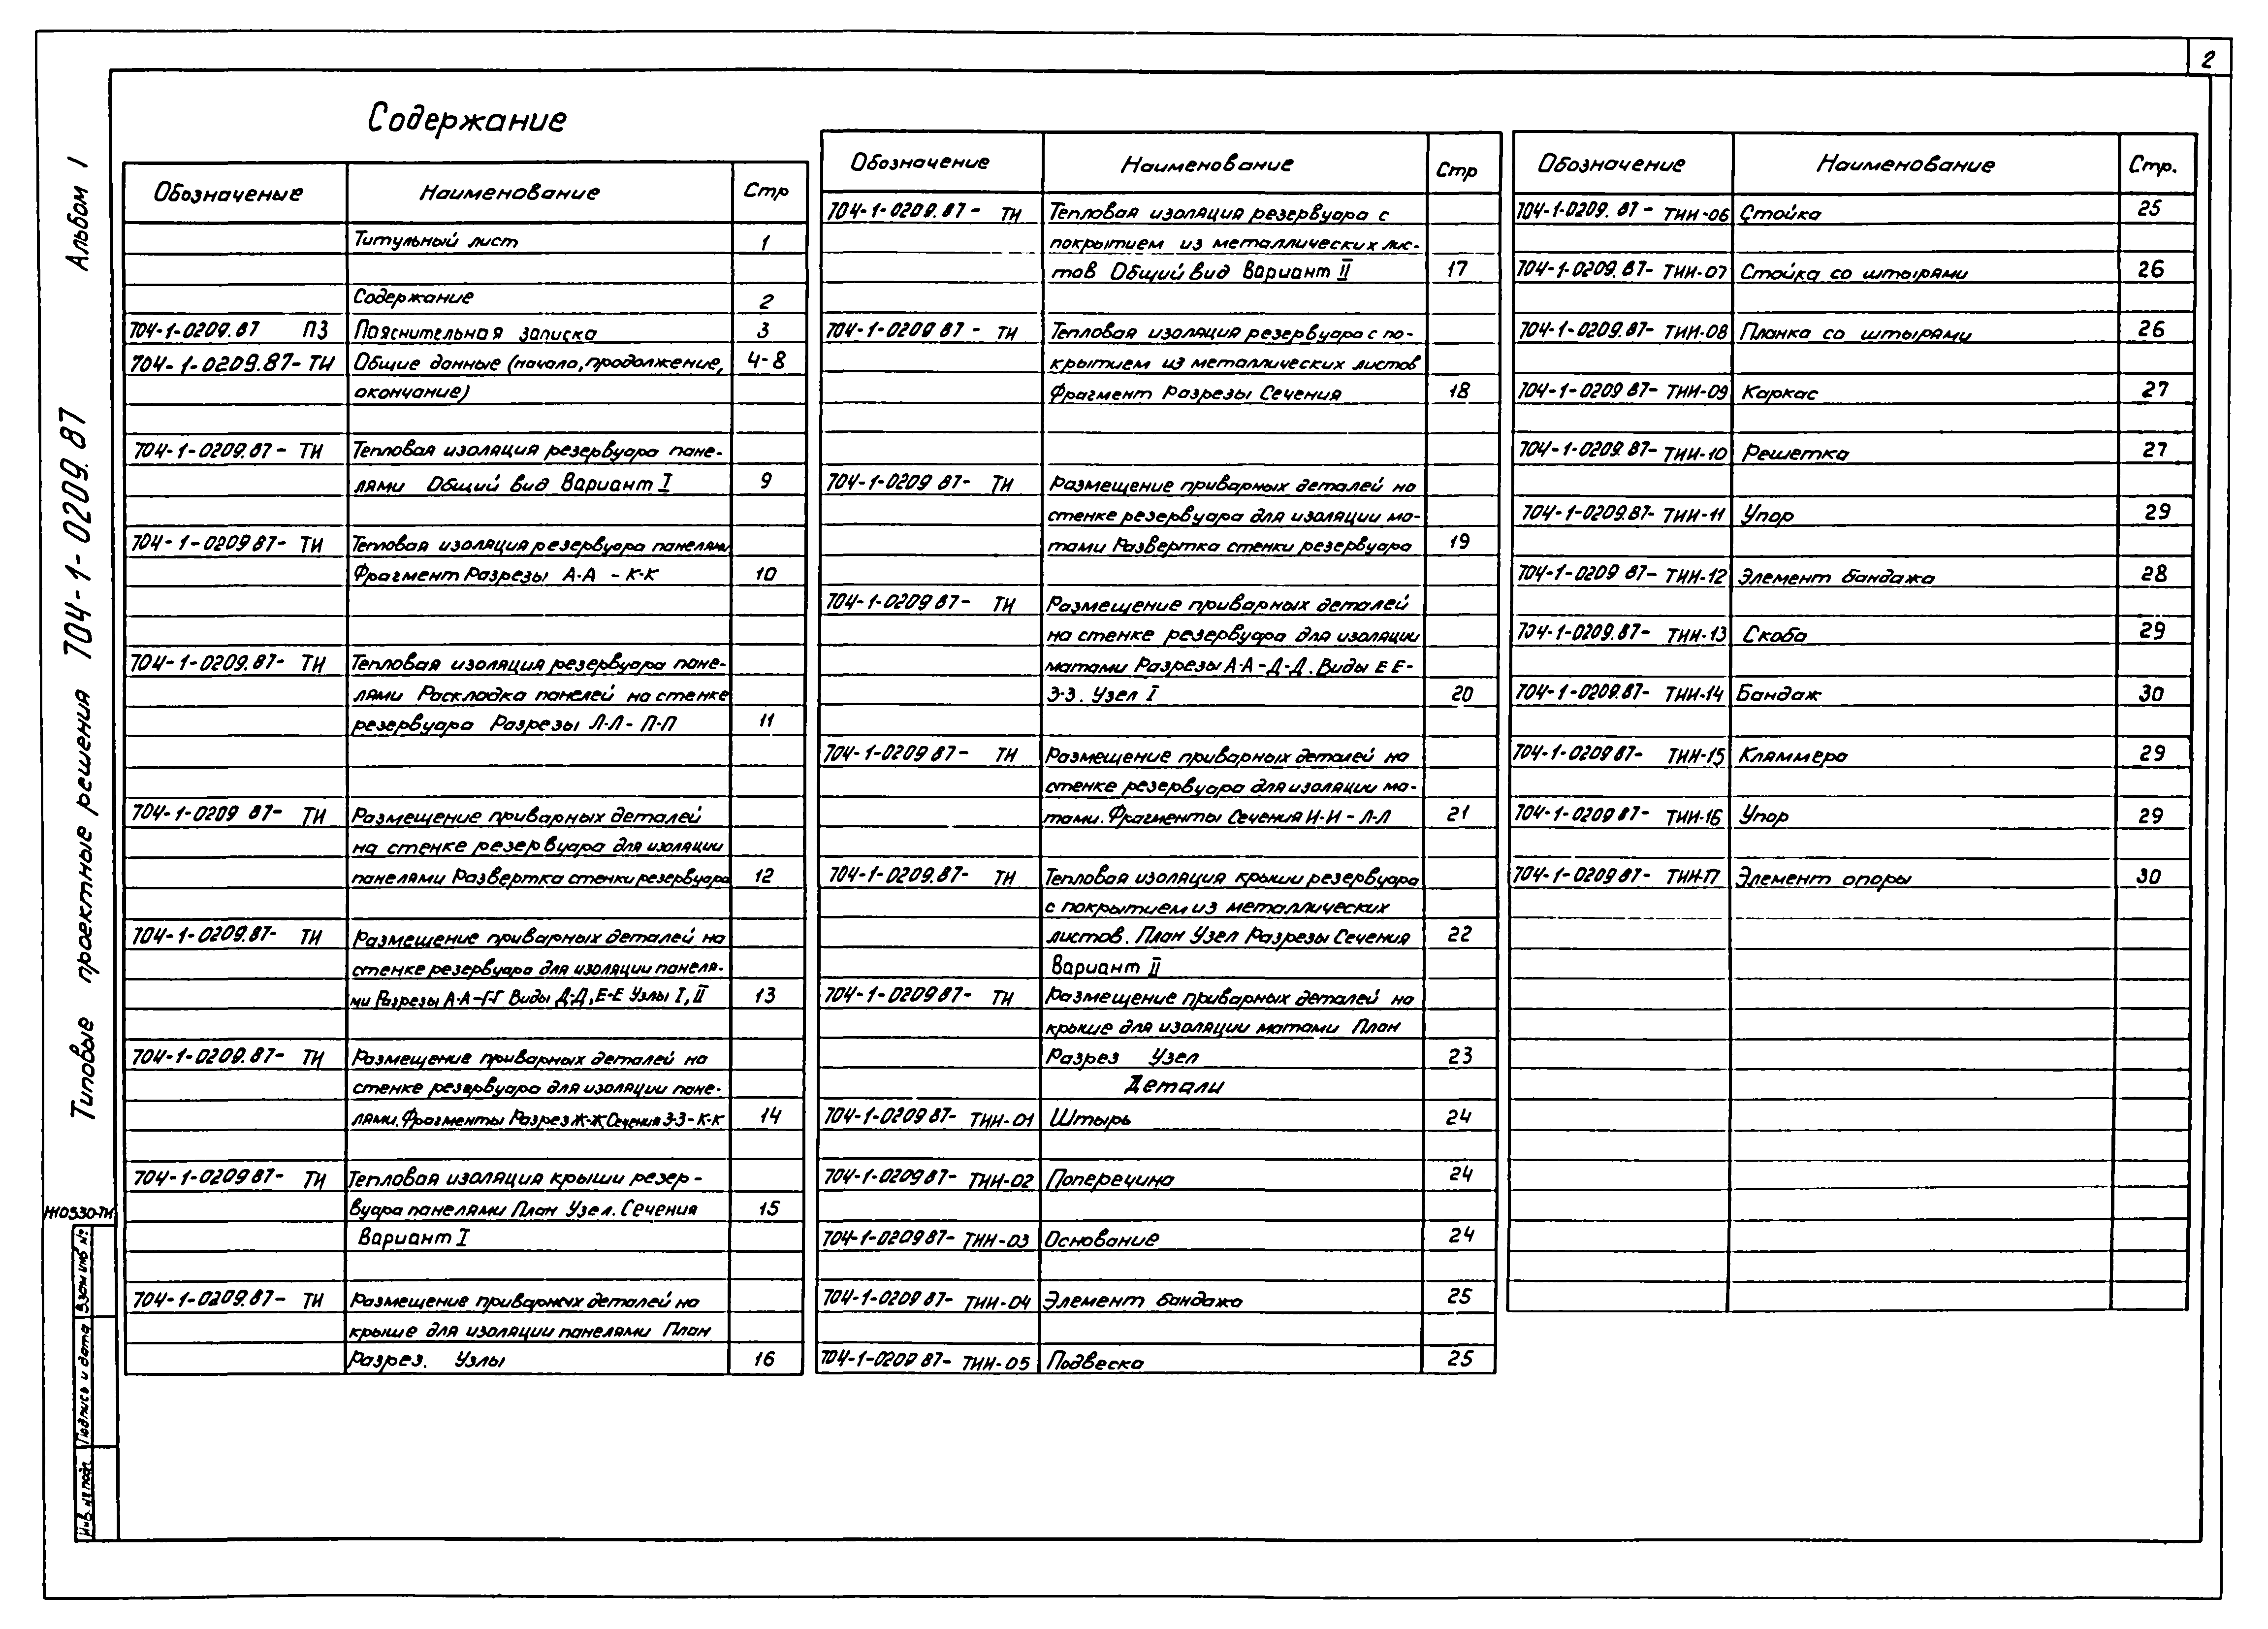 2
Альбом 1
Типовые проектные решения 704-1-0209.87
Содержание
Обозначеные Наименование Стр
Титульный лист 1
Содержание 2
704-1-0209.87 ПЗ Пояснительная записка 3
704-1-0209.87-ТИ Общие данные (начало, продолжение, 4-8
окончание)
704-1-0209.87-ТИ Тепловая изоляция резервуара пане-
лями Общий вид Вариант I 9
704-1-0209 87-ТИ Тепловая изоляция резервуара панелями
Фрагмент Разрезы А-А - К-К 10
704-1-0209.87-ТИ Тепловая изоляция резервуара пане-
лями Раскладка панелей на стенке
резервуара Разрезы Л-Л - П-П 11
704-1-0209 87-ТИ Размещение приварных деталей
на стенке резервуара для изоляции
панелями Развертка стенки резервуара 12
704-1-0209.87-ТИ Размещение приварных деталей на
стенке резервуара для изоляции панеля-
ми Разрезы А-А-Г-Г Виды Д-Д, Е-Е Узлы I, II 13
704-1-0209.87-ТИ Размещение приварных деталей на
стенке резервуара для изоляции пане-
лями. Фрагменты Разрез Ж-Ж Сечения З-З - К-К 14
704-1-0209 87-ТИ Тепловая изоляция крыши резер-
вуара панелями План Узел. Сечения 15
Вариант I
704-1-0209.87-ТИ Размещение приварных деталей на
крыше для изоляции панелями План
Разрез. Узлы 16
Обозначение Наименование Стр
704-1-0209.87-ТИ Тепловая изоляция резервуара с
покрытием из металлических лис-
тов Общий вид Вариант II 17
704-1-0209 87-ТИ Тепловая изоляция резервуара с по-
крытием из металлических листов
Фрагмент Разрезы Сечения 18
704-1-0209 87-ТИ Размещение приварных деталей на
стенке резервуара для изоляции ма-
тами Развертка стенки резервуара 19
704-1-0209 87-ТИ Размещение приварных деталей
на стенке резервуара для изоляции
матами Разрезы А-А - Д-Д. Виды Е Е-
З-З. Узел I 20
704-1-0209 87-ТИ Размещение приварных деталей на
стенке резервуара для изоляции ма-
тами. Фрагменты Сечения И-И - Л-Л 21
704-1-0209.87-ТИ Тепловая изоляция крыши резервуара
с покрытием из металлических
листов. План Узел Разрезы Сечения 22
Вариант II
704-1-0209 87-ТИ Размещение приварных деталей на
крыше для изоляции матами План
Разрез Узел 23
Детали
704-1-0209 87-ТИИ-01 Штырь 24
704-1-0209 87-ТИИ-02 Поперечина 24
704-1-0209 87-ТИИ-03 Основание 24
704-1-0209 87-ТИИ-04 Элемент бандажа 25
704-1-0209 87-ТИИ-05 Подвеска 25
Обозначение Наименование Стр.
704-1-0209.87-ТИИ-06 Стойка 25
704-1-0209.87-ТИИ-07 Стойка со штырями 26
704-1-0209.87-ТИИ-08 Планка со штырями 26
704-1-0209 87-ТИИ-09 Каркас 27
704-1-0209.87-ТИИ-10 Решетка 27
704-1-0209.87-ТИИ-11 Упор 29
704-1-0209 87-ТИИ-12 Элемент бандажа 28
704-1-0209.87-ТИИ-13 Скоба 29
704-1-0209.87-ТИИ-14 Бандаж 30
704-1-0209 87-ТИИ-15 Кляммера 29
704-1-0209 87-ТИИ-16 Упор 29
704-1-0209 87-ТИИ-17 Элемент опоры 30
Взам инв №
Подпись и дата
Инв. № подл.